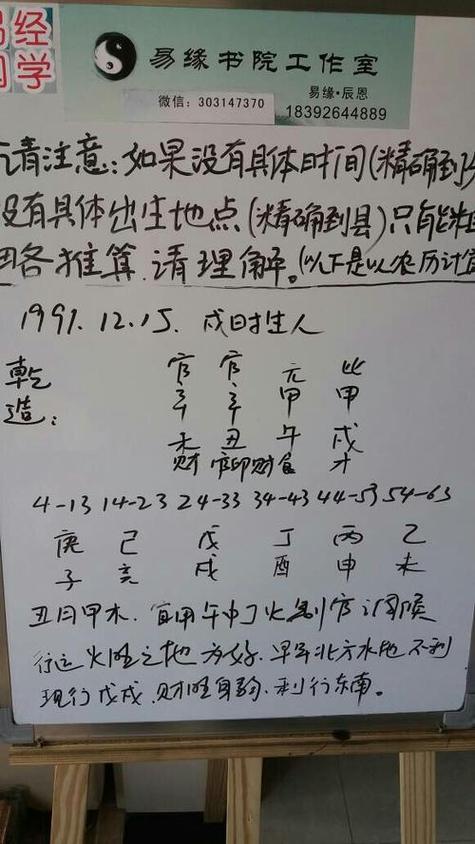 易经
国学
易缘书院工作室
微信：303147370
易缘·辰恩
18392644889
请注意：如果没有具体时间(精确到分
没有具体出生地点(精确到县)只能粗
略推算.请理解。(以下是以农历计算
1991.12.15.戌时生人
乾造：
官 官 元 比
辛 辛 甲 甲
未 丑 午 戌
财 官印财 食 才
4-13 14-23 24-33 34-43 44-53 54-63
庚 己 戊 丁 丙 乙
子 亥 戌 酉 申 未
丑月甲木.宜用午中丁火制官调候
行运火旺之地为好.早年北方水地不利
现行戊戌.财旺身弱.利行东南。